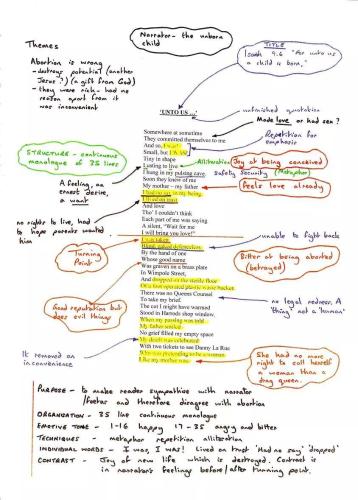 Narrator - the unborn
child
Themes
Abortion is wrong
- destroys potential (another
Jesus?) (a gift from God)
- they were rich - had no
reason apart from it
was inconvenient
TITLE
Isaiah 9.6 "For unto us
a child is born,"
'UNTO US ...'
unfinished quotation
Made love or had sex?
Somewhere at sometime
They committed themselves to me
And so, I was!
Small, but I WAS!
Tiny in shape
Lusting to live
I hung in my pulsing cave.
Soon they knew of me
My mother – my father
I had no say in my being
I lived on trust
And love
Tho' I couldn't think
Each part of me was saying
A silent, "Wait for me
I will bring you love!"
I was taken
Blind, naked, defenceless
By the hand of one
Whose good name
Was graven on a brass plate
In Wimpole Street,
And dropped on the sterile floor
Of a foot operated plastic waste bucket.
There was no Queens Counsel
To take my brief.
The cot I might have warmed
Stood in Harrods shop window.
When my passing was told
My father smiled.
No grief filled my empty space
My death was celebrated
With two tickets to see Danny La Rue
Who was pretending to be a woman
Like my mother was.
Repetition for
emphasis
STRUCTURE - continuous
monologue of 35 lines
Alliteration
Joy at being conceived
Safety Security
Metaphor
Feels love already
A feeling, an
ernest desire,
a want
no rights to live, had
to hope parents wanted
him
Turning
Point
unable to fight back
Bitter at being aborted
(betrayed)
Good reputation but
does evil things
no legal redress. A
'thing' not a 'human'
It removed an
inconvenience
She had no more
right to call herself
a woman than a
drag queen.
PURPOSE - to make reader sympathise with narrator
/foetus and therefore disagree with abortion
ORGANISATION - 35 line continuous monologue
EMOTIVE TONE - 1-16 happy 17-35 angry and bitter
TECHNIQUES - metaphor repetition alliteration
INDIVIDUAL WORDS - I was, I WAS! Lived on trust 'Had no say' 'dropped'
CONTRAST - Joy of new life which is destroyed. Contrast is
in narrator's feelings before/after turning point.